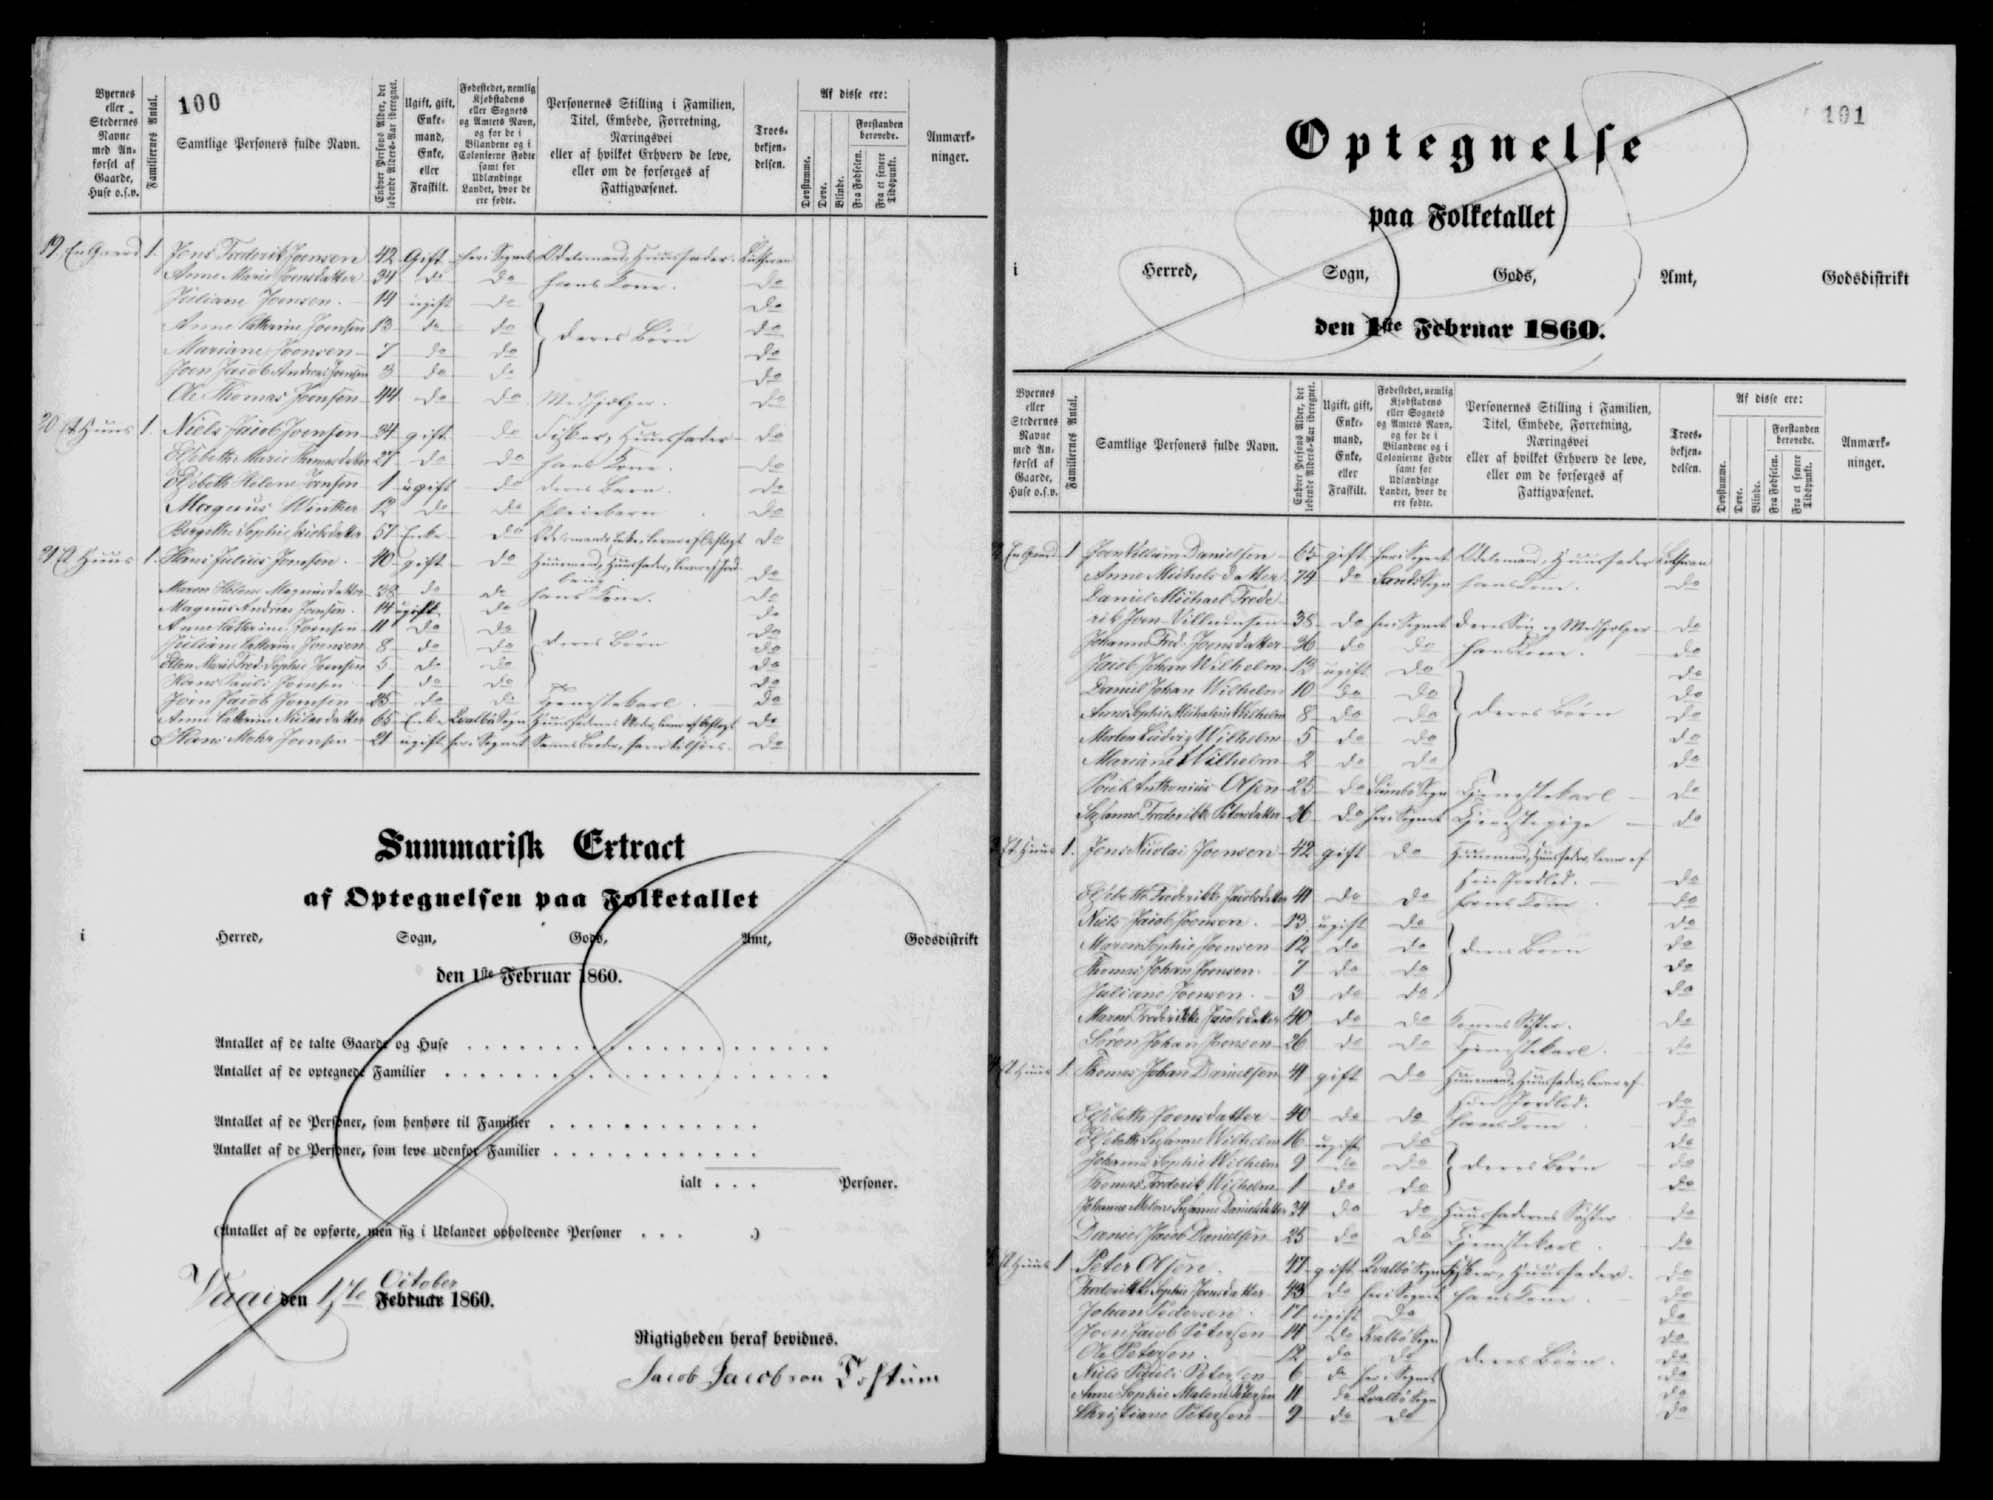 100
Byernes eller Stedernes Navne med Anførsel af Gaarde, Huse o.s.v.
Familiernes Antal.
Samtlige Personers fulde Navn.
Enhver Persons Alder, det løbende Alders-Aar iberegnet.
Ugift, gift, Enkemand, Enke, eller Fraskilt.
Fødestedet, nemlig Kjøbstadens eller Sognets og Amtets Navn, og for de i Bilandene og i Colonierne Fødte samt for Udlændinge Landet, hvor de ere fødte.
Personernes Stilling i Familien, Titel, Embede, Forretning, Næringsvei eller af hvilket Erhverv de leve, eller om de forsørges af Fattigvæsenet.
Troes-bekjen-delsen.
Af disse ere:
Døvstumme.
Døve.
Blinde.
Forstanden berøvede.
Fra Fødselen.
Fra et senere Tidspunkt.
Anmærk-ninger.
19 En Gaard 1. Jens Frederik Joensen 42 Gift her i Sognet Odelsmand, Huusfader Luthersn
Anne Marie Joensdatter 34 do do hans Kone. do
Juliane Joensen. 14 ugift do do
Anne Cathrine Joensen 13 do do deres Børn do
Mariane Joensen 7 do do do
Joen Jacob Andreas Joensen 3 do do do
Ole Thomas Joensen 44 do do Medhjælper. do
20 Et Huus 1. Niels Jacob Joensen 34 gift do Fisker, Huusfader do
Elsebeth Marie Thomasdatter 27 do do hans Kone. do
Elsebeth Helene Joensen 1 ugift do deres Barn. do
Magnus Winther 12 do do Pleiebarn do
Birgithe Sophie 57 Enke do do
21 Et Huus 1. Hans Julius Joensen. 40 gift do Huusmand, Huusfader, lever af Jord- do
Maren Helene Magnusdatter 38 do do hans Kone. do
Magnus Andreas Joensen. 14 ugift do do
Anne Cathrine Joensen 11 do do do
Juliane Cathrine Joensen 8 do do deres Børn do
Ellen Marie Fred. Sophie Joensen 5 do do do
Hans Pauli Joensen 1 do do do
Joen Jacob Joensen 25 do do Tjenestekarl. do
Anne Cathrine Nielsdatter 65 Enke Qvalbø Sogn Huusfaderens Moder, do
Hans Mohr Joensen 21 ugift her i Sognet do
Summarisk Extract
af Optegnelsen paa Folketallet
i Herred, Sogn, Gods, Amt, Godsdistrikt
den 1ste Februar 1860.
Antallet af de talte Gaarde og Huse
Antallet af de optegnede Familier
Antallet af de Personer, som henhøre til Familier
Antallet af de Personer, som leve udenfor Familier
ialt . . . Personer.
(Antallet af de opførte, men sig i Udlandet opholdende Personer . . . .)
October
Vaai den 17de Februar 1860.
Rigtigheden heraf bevidnes.
Jacob Jacobson
101
Optegnelse
paa Folketallet
i Herred, Sogn, Gods, Amt, Godsdistrikt
den 1ste Februar 1860.
Byernes eller Stedernes Navne med Anførsel af Gaarde, Huse o.s.v.
Familiernes Antal.
Samtlige Personers fulde Navn.
Enhver Persons Alder, det løbende Alders-Aar iberegnet.
Ugift, gift, Enkemand, Enke, eller Fraskilt.
Fødestedet, nemlig Kjøbstadens eller Sognets og Amtets Navn, og for de i Bilandene og i Colonierne Fødte samt for Udlændinge Landet, hvor de ere fødte.
Personernes Stilling i Familien, Titel, Embede, Forretning, Næringsvei eller af hvilket Erhverv de leve, eller om de forsørges af Fattigvæsenet.
Troes-bekjen-delsen.
Af disse ere:
Døvstumme.
Døve.
Blinde.
Forstanden berøvede.
Fra Fødselen.
Fra et senere Tidspunkt.
Anmærk-ninger.
En Gaard 1 Joen Villum Danielsen 65 gift her i Sognet Odelsmand, Huusfader Luthersn
Anne Michelsdatter 74 do Sands Sogn hans Kone. do
Daniel Michael Frede-
rik Joen Villumsen 38 do her i Sognet deres Søn og Medhjælper do
Johanne Fred. Joensdatter 36 do do hans Kone. do
Jacob Johan Wilhelm 13 ugift do do
Daniel Johan Wilhelm 10 do do do
Anne Sophie Wilhelm 8 do do deres Børn do
Morten Ludvig Wilhelm 5 do do do
Mariane Wilhelm 2 do do do
Poul Anthonius Olsen 25 do Sumbø Sogn Tjenestekarl do
Susanne Frederikke Petersdatter 26 do her i Sognet Tjenestepige do
Et Huus 1. Jens Nicolai Joensen 42 gift do Huusmand, Huusfader, lever af
sin Jordlod. do
Elsebeth Frederikke Jacobsdatter 41 do do hans Kone do
Niels Jacob Joensen. 13 ugift do do
Maren Sophie Joensen 12 do do deres Børn do
Thomas Johan Joensen. 7 do do do
Juliane Joensen. 3 do do do
Maren Frederikke Jacobsdatter 40 do do Konens Søster. do
Søren Johan Joensen 26 do do Tjenestekarl. do
Et Huus 1. Thomas Johan Danielsen 41 gift do Huusmand, Huusfader, lever af
sin Jordlod. do
Elsebeth Joensdatter 40 do do hans Kone do
Elsebeth Susanne Wilhelm 16 ugift do do
Johanne Sophie Wilhelm 9 do do deres Børn do
Thomas Frederik Wilhelm 1 do do do
Johanne Malene Susanne Danielsdatter 34 do do Huusfaderens Søster do
Daniel Jacob Danielsen 25 do do Tjenestekarl. do
Et Huus 1 Peter Olsen. 47 gift Qvalbø Sogn Fisker, Huusfader. do
Frederikke Sophie Joensdatter 43 do her i Sognet hans Kone do
Johan Petersen 17 ugift do do
Joen Jacob Petersen 14 do Qvalbø Sogn do
Ole Petersen. 12 do do deres Børn. do
Niels Pauli Petersen 6 do her i Sognet do
Anne Sophie Malene Petersen 11 do Qvalbø Sogn do
Christiane Petersen 9 do do do